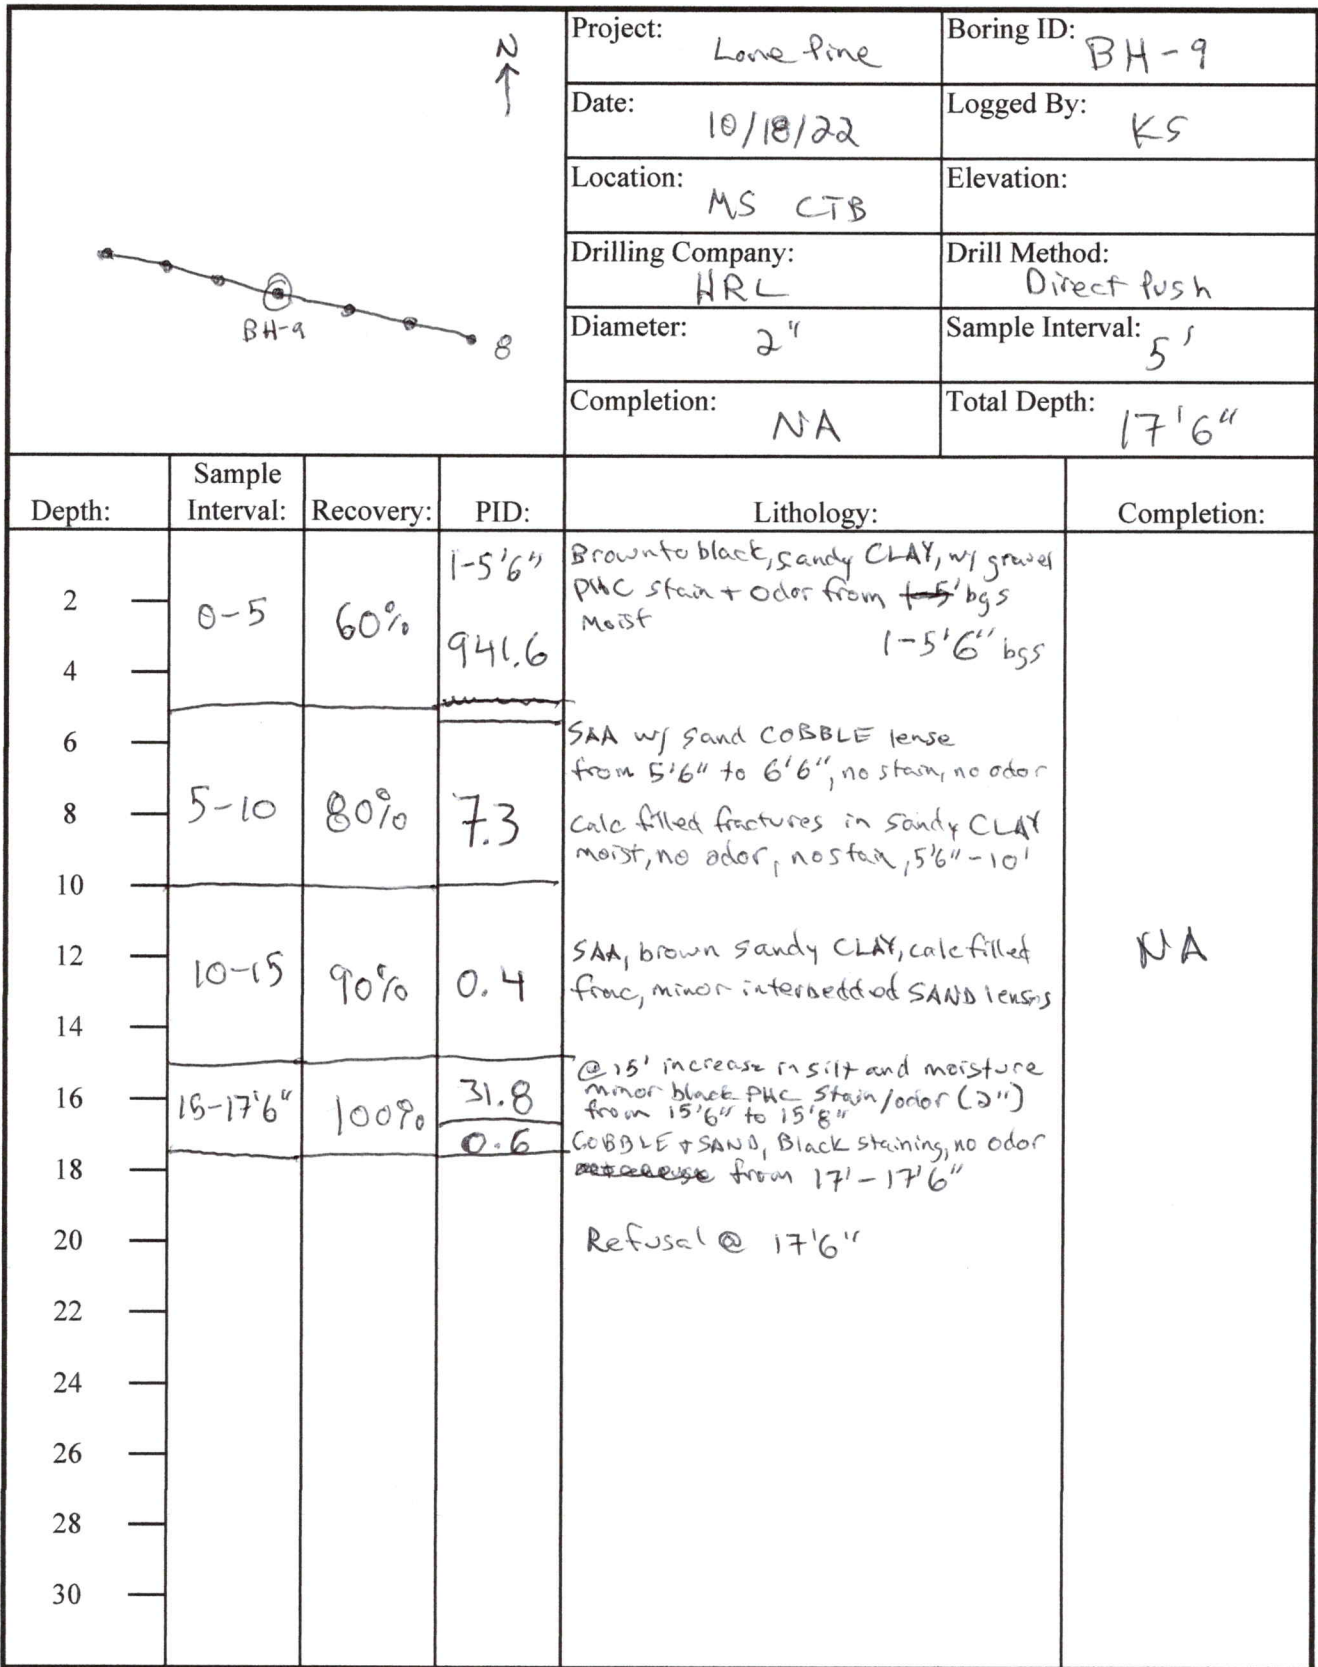 N
BH-9
8
Project: Lone Pine
Boring ID: BH-9
Date: 10/18/22
Logged By: KS
Location: MS CTB
Elevation:
Drilling Company: HRL
Drill Method: Direct Push
Diameter: 2"
Sample Interval: 5'
Completion: NA
Total Depth: 17'6"
Depth:
Sample
Interval:
Recovery:
PID:
Lithology:
Completion:
2
4
6
8
10
12
14
16
18
20
22
24
26
28
30
0-5
60%
1-5'6"
941.6
Brown to black, sandy CLAY, w/ gravel
PHC stain + odor from 1-5' bgs
Moist
1-5'6" bgs
5-10
80%
7.3
SAA w/ sand COBBLE lense
from 5'6" to 6'6", no stain, no odor
calc filled fractures in sandy CLAY
moist, no odor, no stain, 5'6"-10'
10-15
90%
0.4
SAA, brown sandy CLAY, calc filled
frac, minor interbedded SAND lenses
NA
15-17'6"
100%
31.8
0.6
@ 15' increase in silt and moisture
minor black PHC stain/odor (2")
from 15'6" to 15'8"
COBBLE + SAND, Black staining, no odor
from 17'-17'6"
Refusal @ 17'6"